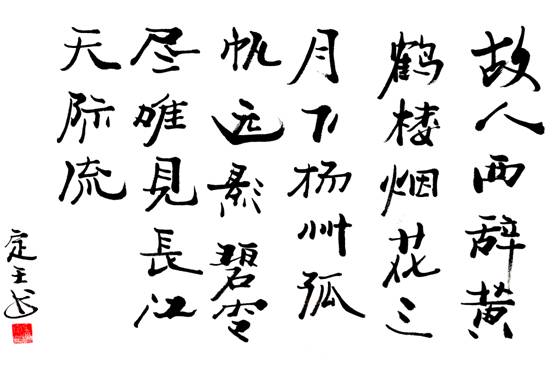 故人西辞黄
鹤楼烟花三
月下扬州孤
帆远影碧空
尽唯見長江
天际流
定玉书